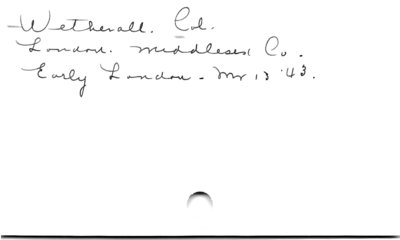 Wetherall. Col.
London. Middlesex Co.
Early London - Mr 13 '43.